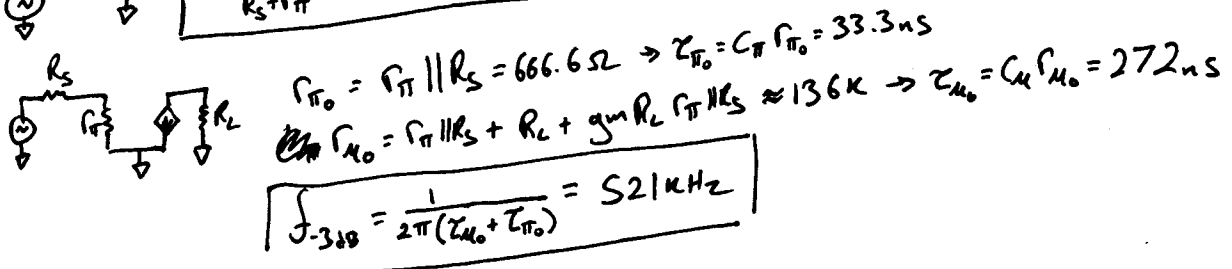 R_S + r_π
R_S
r_π
R_L
r_π₀ = r_π || R_S = 666.6 Ω → τ_π₀ = C_π r_π₀ = 33.3ns
r_μ₀ = r_π || R_S + R_L + gm R_L r_π || R_S ≈ 136K → τ_μ₀ = C_μ r_μ₀ = 272ns
f_-3dB = 1 / 2π(τ_μ₀ + τ_π₀) = 521kHz